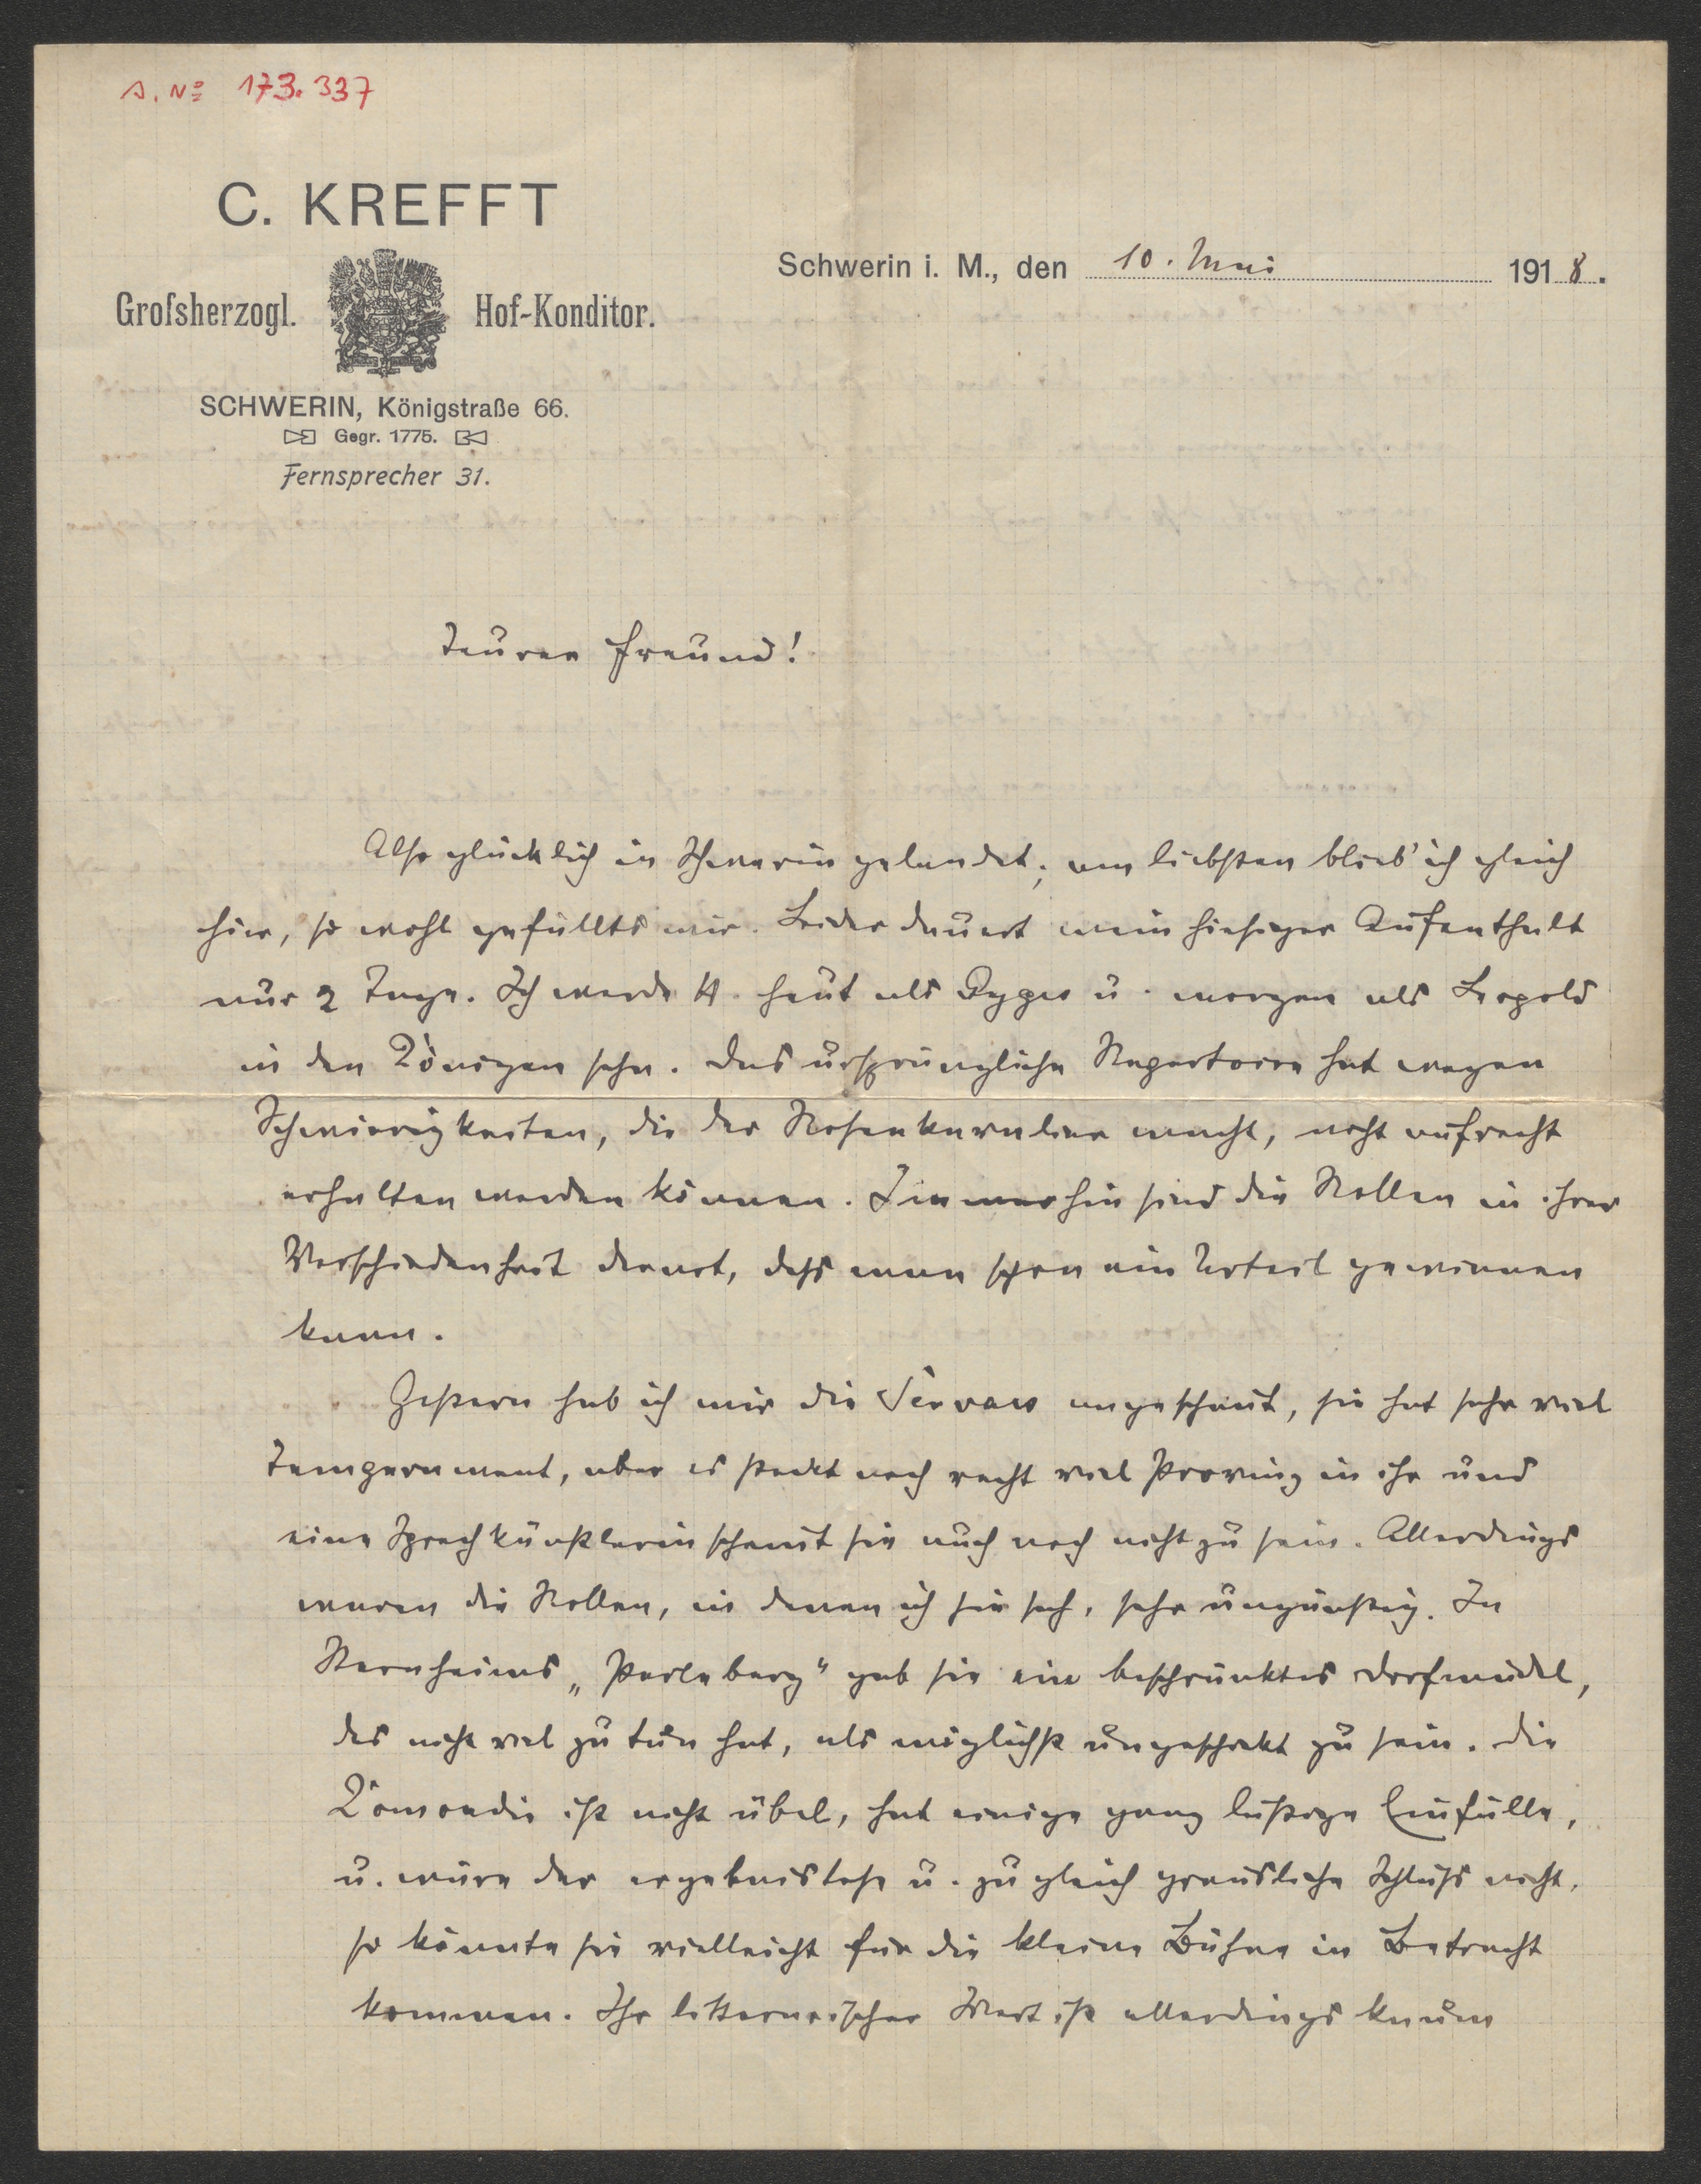 A. No 173.337
C. KREFFT
Schwerin i. M., den 10. Mai 1918.
Grofsherzogl. Hof-Konditor.
SCHWERIN, Königstraße 66.
Gegr. 1775.
Fernsprecher 31.
Teurer Freund!
Also glücklich in Schwerin gelandet; am liebsten blieb' ich gleich
hier, so wohl gefällts mir. Leider dauert mein hiesiger Aufenthalt
nur 2 Tage. Ich werde H. heut als Gyges u. morgen als Leopold
in den Königen sehn. Das ursprüngliche Repertoire hat wegen
Schwierigkeiten, die der Rosenkavalier macht, nicht aufrecht
erhalten werden können. Immerhin sind die Rollen in ihrer
Verschiedenheit derart, dass man schon ein Urteil gewinnen
kann.
Gestern hab ich mir die Servaes angeschaut, sie hat sehr viel
Temperament, aber es steckt noch recht viel Provinz in ihr und
eine Sprechkünstlerin scheint sie auch noch nicht zu sein. Allerdings
waren die Rollen, in denen ich sie sah, sehr ungünstig. In
Sternheims „Perleberg“ gab sie ein beschränktes Dorfmädel,
das nicht viel zu tun hat, als möglichst ungeschickt zu sein. Die
Komoedie ist nicht übel, hat einige ganz lustige Einfälle,
u. wäre der ergebnislose u. zugleich grausliche Schluss nicht,
so könnte sie vielleicht für die kleine Bühne in Betracht
kommen. Ihr litterarischer Wert ist allerdings kaum